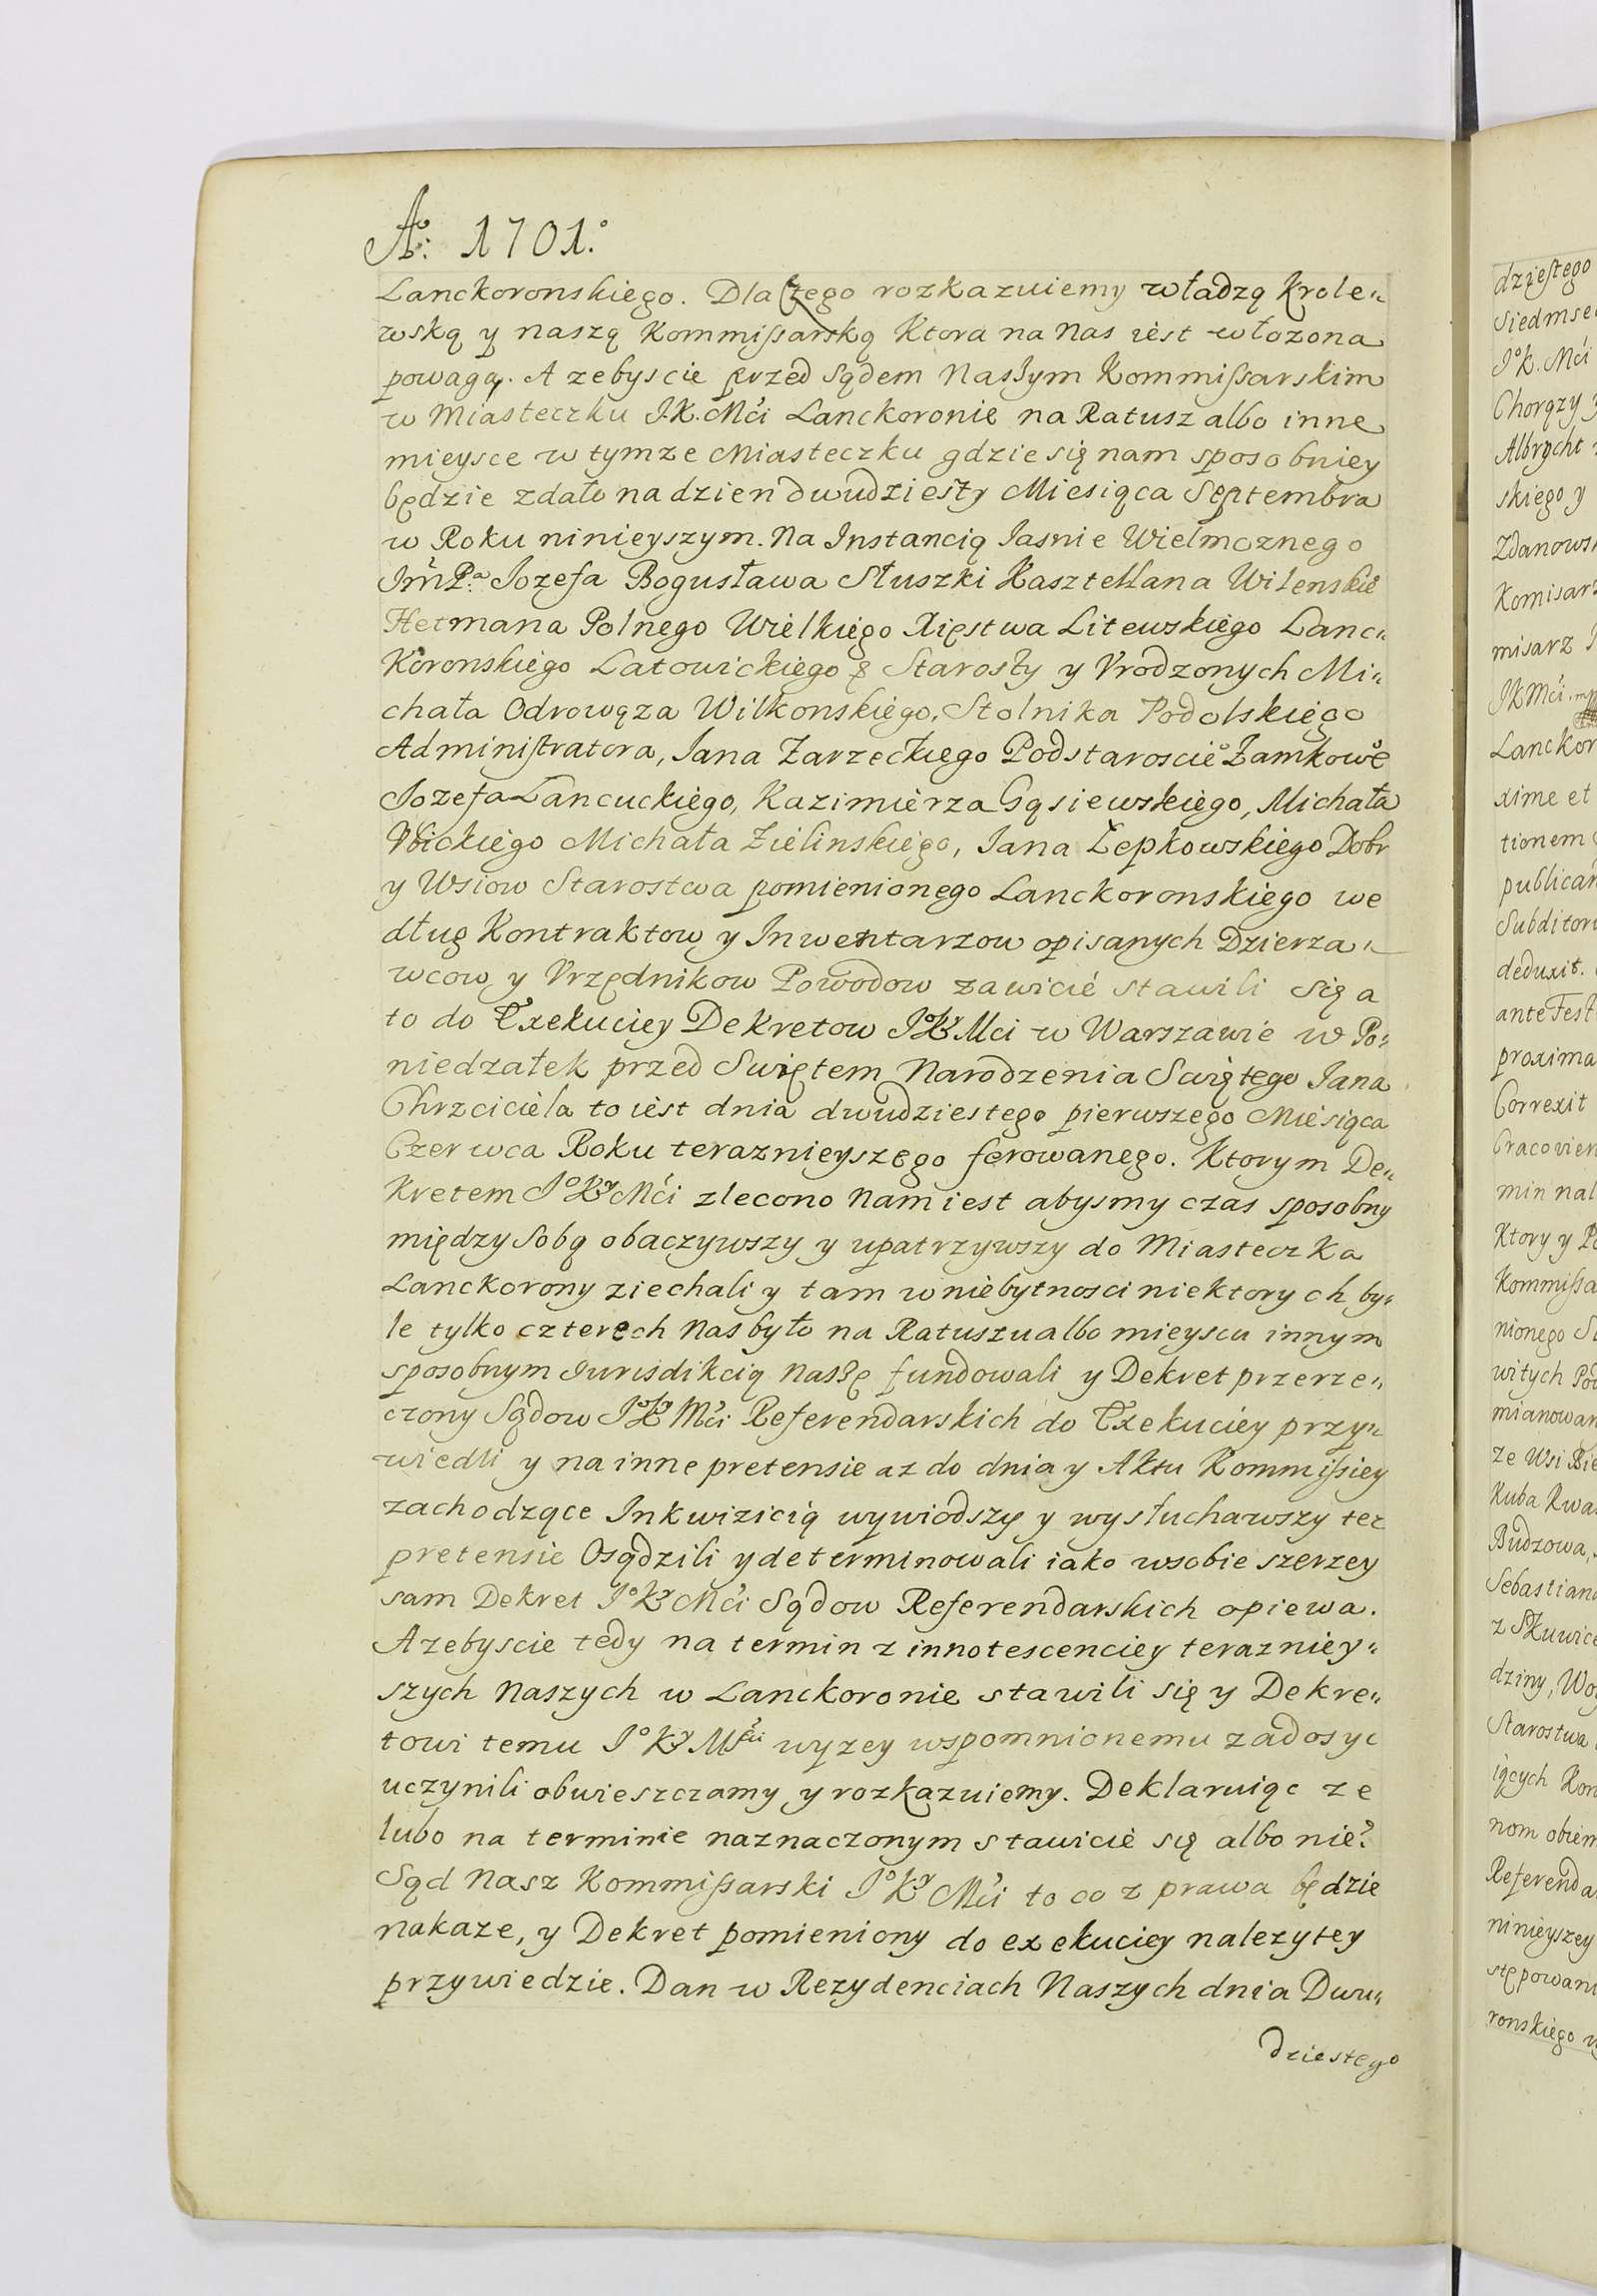 Aº: 1701.º
Lanckoronskiego. Dla Czego rozkazuiemy władzą Krole„
wską y naszą Kommissarską Ktora na Nas iest włozona
powagą. A zebyscie przed Sądem Naszym Kommissarskim
w Miasteczku J.K. Mći Lanckoronie na Ratusz albo inne
mieysce w tymze Miasteczku gdzie się nam sposobniey
będzie zdało na dzien dwudziesty Miesiąca Septembra
w Roku ninieyszym. Na Instancią Jasnie Wielmoznego
Jm̃ Pª. Jozefa Bogusława Słuszki Kasztellana Wilenskiᵉ
Hetmana Polnego Wielkiego Xięstwa Litewskiego Lanc„
Koronskiego Latowickiego & Starosty y Vrodzonych Mi„
chała Odrowąza Wilkonskiego, Stolnika Podolskiego
Administratora, Jana Zarzeckiego Podstarosciº Zamkowº
Jozefa Lancuckiego, Kazimierza Gąsiewskiego, Michała
Michała Zielinskiego, Jana Zepkowskiego Dobr
y Wsiow Starostwa pomienionego Lanckoronskiego we
dług Kontraktow y Inwentarzow opisanych Dzierza„
wcow y Vrzędnikow Powodow zawicie stawili Się a
to do Exekuciey Dekretow Jº Kʸ Mci w Warszawie w Po„
niedzałek przed Swiętem Narodzenia Swiętego Jana
Chrzciciela to iest dnia dwudziestego pierwszego Miesiąca
Czerwca Roku teraznieyszego ferowanego. Ktorym De„
Kretem Jº Kʸ Mći zlecono Nam iest abysmy czas sposobny
między Sobą obaczywszy y upatrzywszy do Miasteczka
Lanckorony ziechali y tam w niebytnosci niektorych by„
le tylko czterech Nas było na Ratuszu albo mieyscu innym
sposobnym Jurisdikcią Naszę fundowali y Dekret przerze„
czony Sądow Jº Kʸ Mći Referendarskich do Exekuciey przy„
wiedli y na inne pretensie az do dnia y Aktu Kommissiey
zachodzące Inkwizicią wywiodszy y wysłuchawszy tez
pretensie Osądzili y determinowali iako w sobie szerzey
sam Dekret Jº Kʸ Mći Sądow Referendarskich opiewa.
A zebyscie tedy na termin z innotescenciey terazniey„
szych Naszych w Lanckoronie stawili się y Dekre„
towi temu Jº Kʸ Mści wyzey wspomnionemu zadosyc
uczynili obwieszczamy y rozkazuiemy. Deklaruiąc ze
lubo na terminie naznaczonym stawicie się albo nie?
Sąd Nasz Kommissarski Jº Kʸ Mći to co z prawa będzie
nakaze, y Dekret pomieniony do exekuciey nalezytey
przywiedzie. Dan w Rezydenciach Naszych dnia Dwu„
dziestego
dziestego
Siedmse
Jº K. Mći
Chorązy
Albrycht
skiego y
Zdanows
Komisarz
misarz
JKMći
Lanckor
xime et
tionem
publican
Subditoru
deduxit.
ante Fest
proxima
Correxit
Cracovien
min nal
Ktory y Po
Kommissa
nionego S
witych Pod
mianowan
ze Wsi Bie
Kuba Kwa
Budzowa,
Sebastiana
z Skuwice
dziny, Woy
Starostwa
iących Kom
nom obiem
Referenda
ninieyszey
stępowani
ronskiego